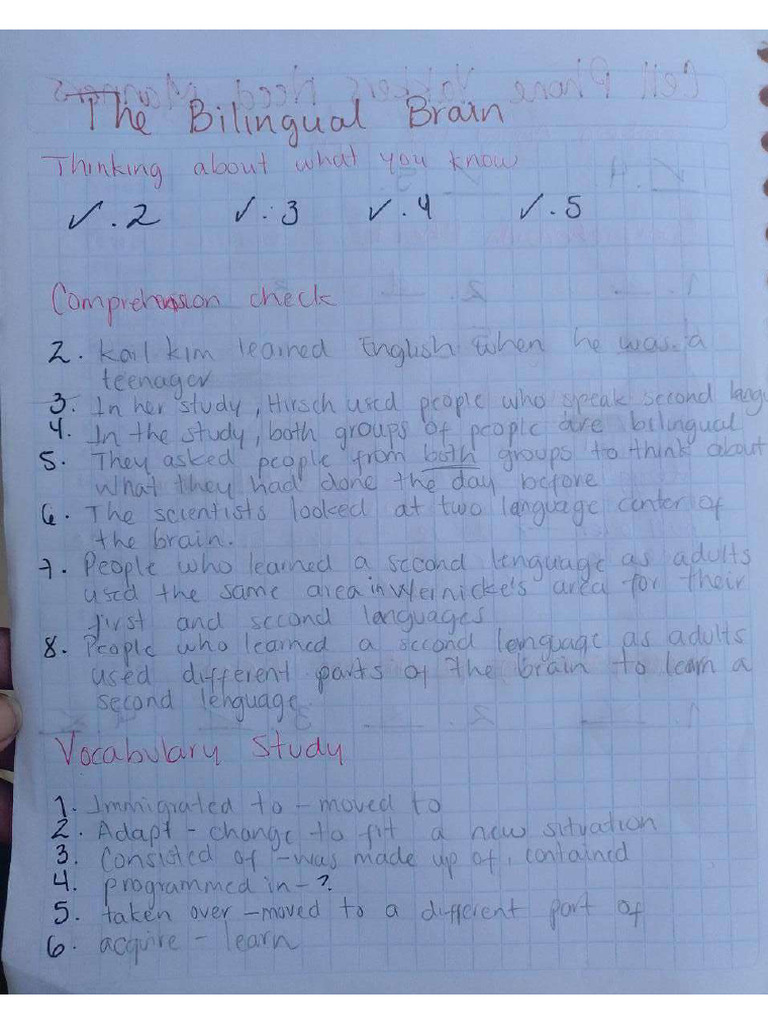 The Bilingual Brain
Thinking about what you know
✓.2 ✓.3 ✓.4 ✓.5
Comprehension check
2. Karl kim learned English when he was a
teenager
3. In her study, Hirsch used people who speak second langu
4. In the study, both groups of people are bilingual
5. They asked people from both groups to think about
what they had done the day before
6. The scientists looked at two language center of
the brain.
7. People who learned a second lenguage as adults
used the same area in Wernicke's area for their
first and second languages
8. People who learned a second lenguage as adults
used different parts of the brain to learn a
second lenguage.
Vocabulary Study
1. Immigrated to - moved to
2. Adapt - change to fit a new situation
3. Consisted of - was made up of, contained
4. programmed in - ?
5. taken over - moved to a different part of
6. acquire - learn